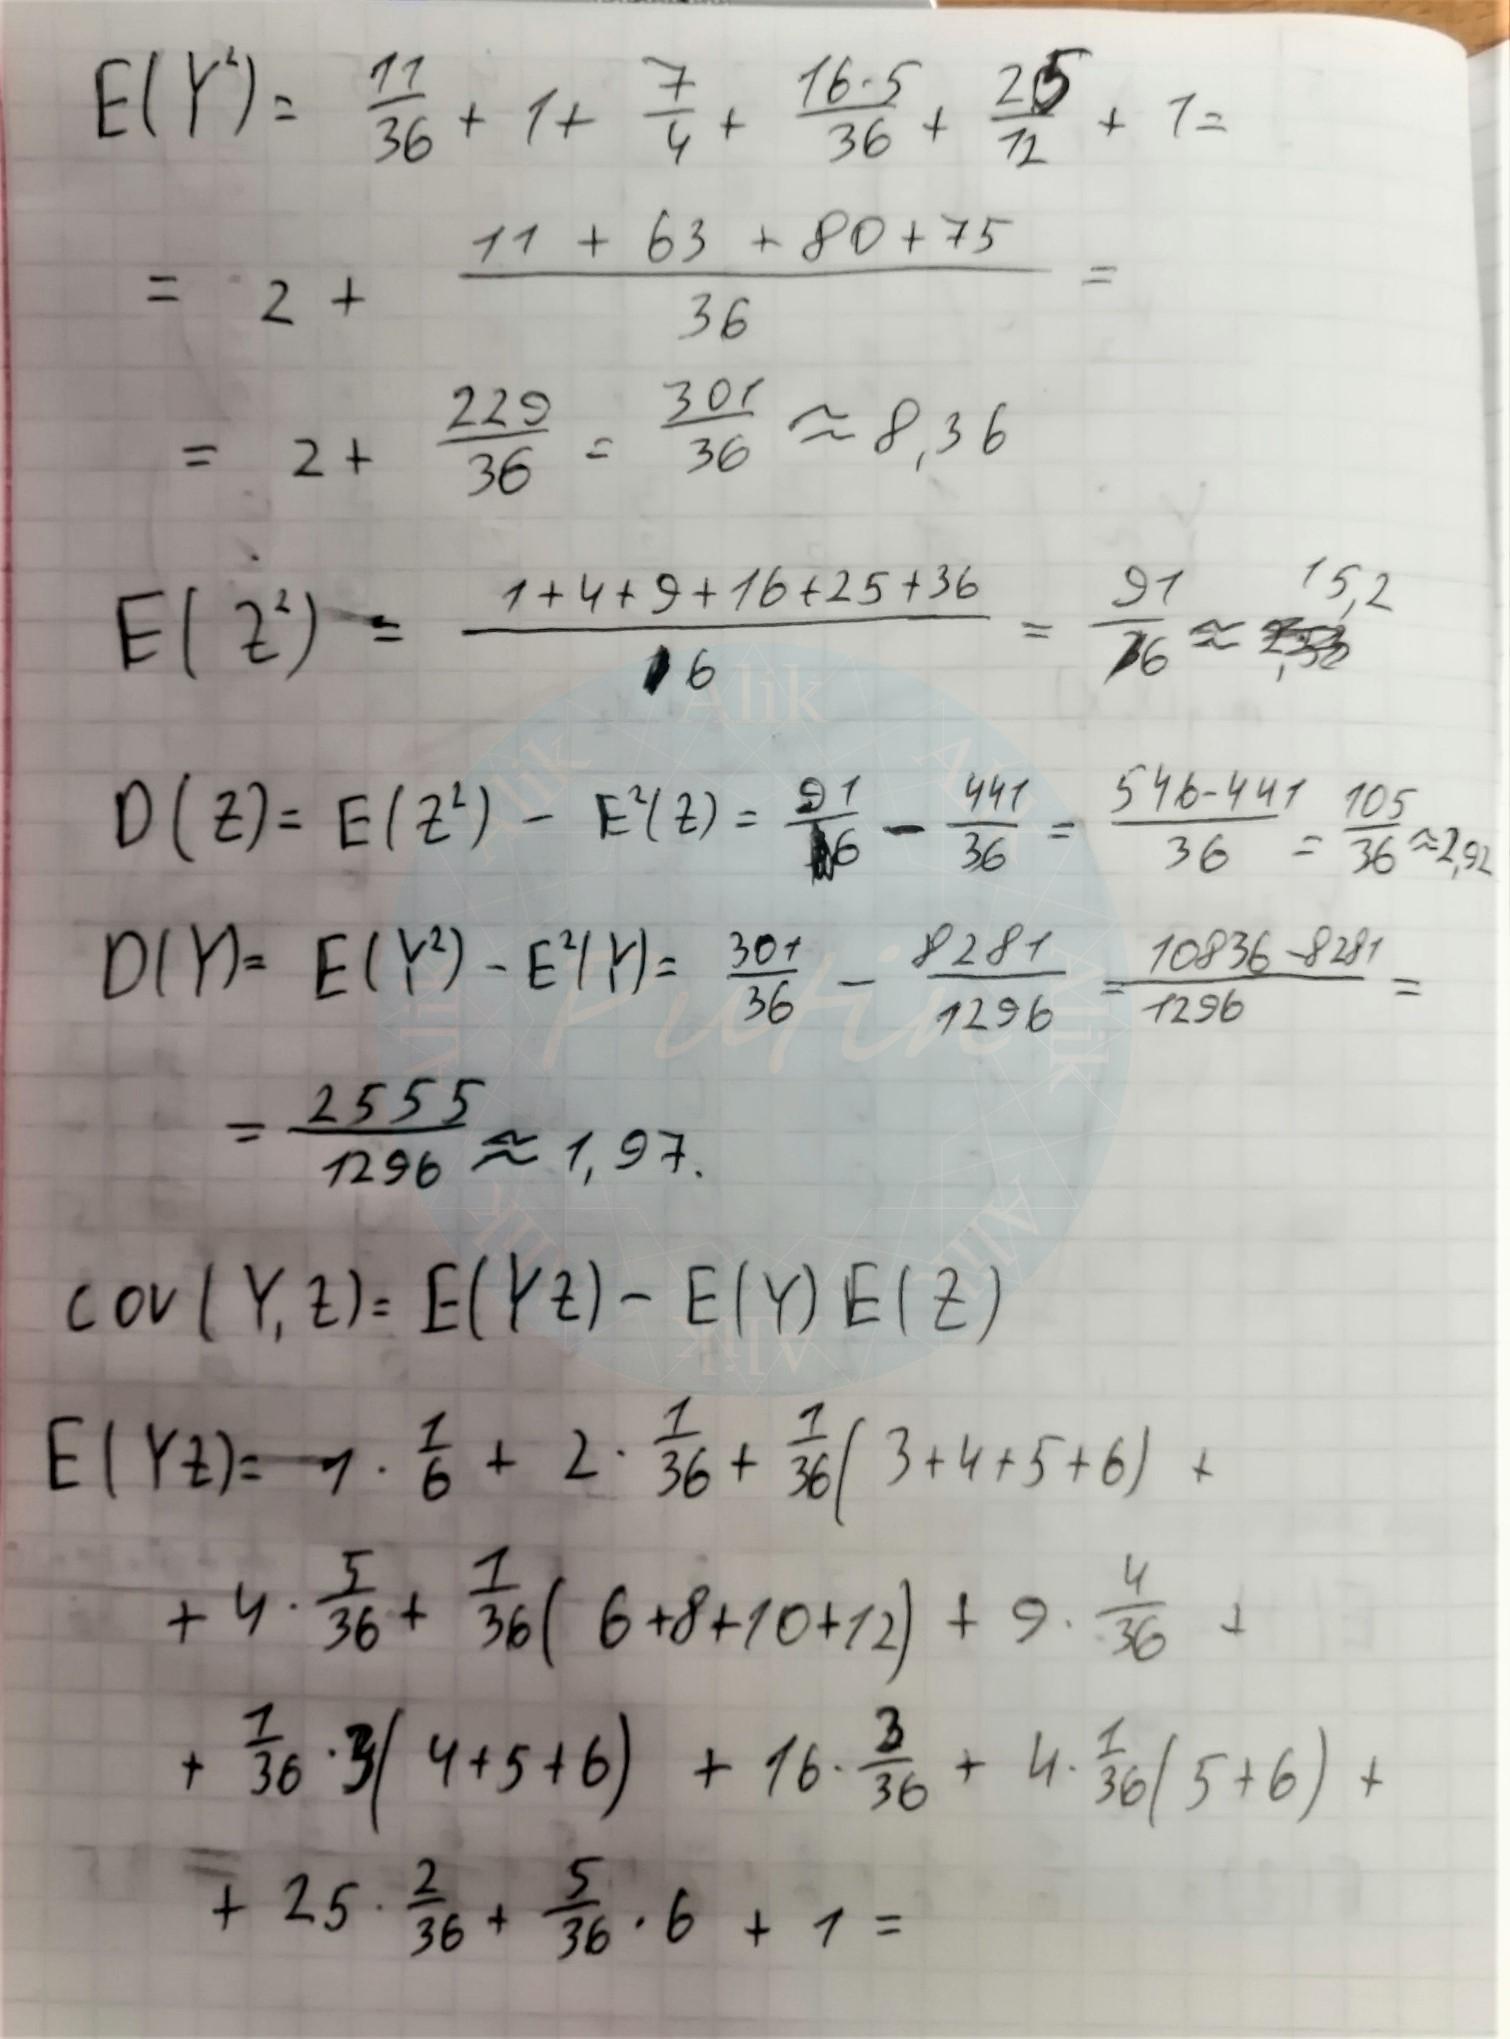 E(Y²) = 11/36 + 1 + 7/4 + 16·5/36 + 25/12 + 1 =
= 2 + (11 + 63 + 80 + 75)/36 =
= 2 + 229/36 = 301/36 ≈ 8,36
E(Z²) = (1+4+9+16+25+36)/6 = 91/6 ≈ 15,2
D(Z) = E(Z²) - E²(Z) = 91/6 - 441/36 = (546-441)/36 = 105/36 ≈ 2,92
D(Y) = E(Y²) - E²(Y) = 301/36 - 8281/1296 = (10836-8281)/1296 =
= 2555/1296 ≈ 1,97.
cov(Y,Z) = E(YZ) - E(Y)E(Z)
E(YZ) = 1 · 1/6 + 2 · 1/36 + 1/36(3+4+5+6) +
+ 4 · 5/36 + 1/36(6+8+10+12) + 9 · 4/36 +
+ 1/36 · 3(4+5+6) + 16 · 3/36 + 4 · 1/36(5+6) +
+ 25 · 2/36 + 5/36 · 6 + 1 =
Alik
Alik
Alik
Alik
Alik
Alik
Alik
Alik
Putin